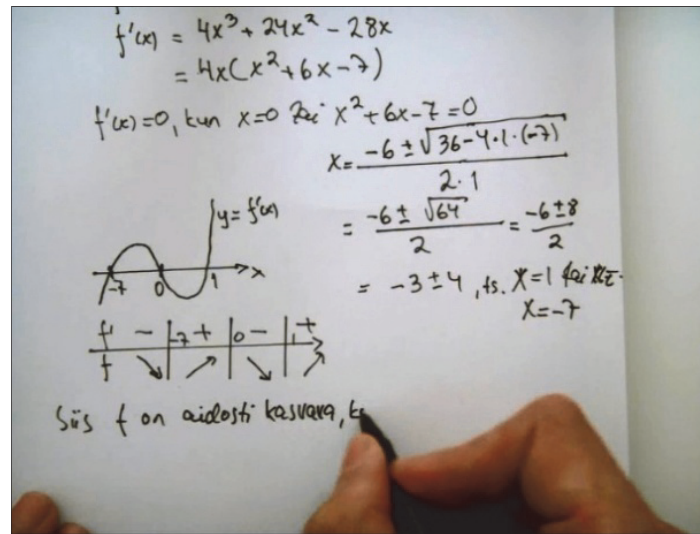 f'(x) = 4x³ + 24x² − 28x
= 4x(x² + 6x − 7)
f'(x)=0, kun x=0 tai x² + 6x − 7 = 0
x = (−6 ± √(36 − 4·1·(−7))) / (2·1)
= (−6 ± √64) / 2 = (−6 ± 8) / 2
= −3 ± 4, ts. x = 1 tai
x = −7
y = f'(x)
−7 0 1 x
f' − −7 + 0 − 1 +
f ↘ ↗ ↘ ↗
Siis f on aidosti kasvava,